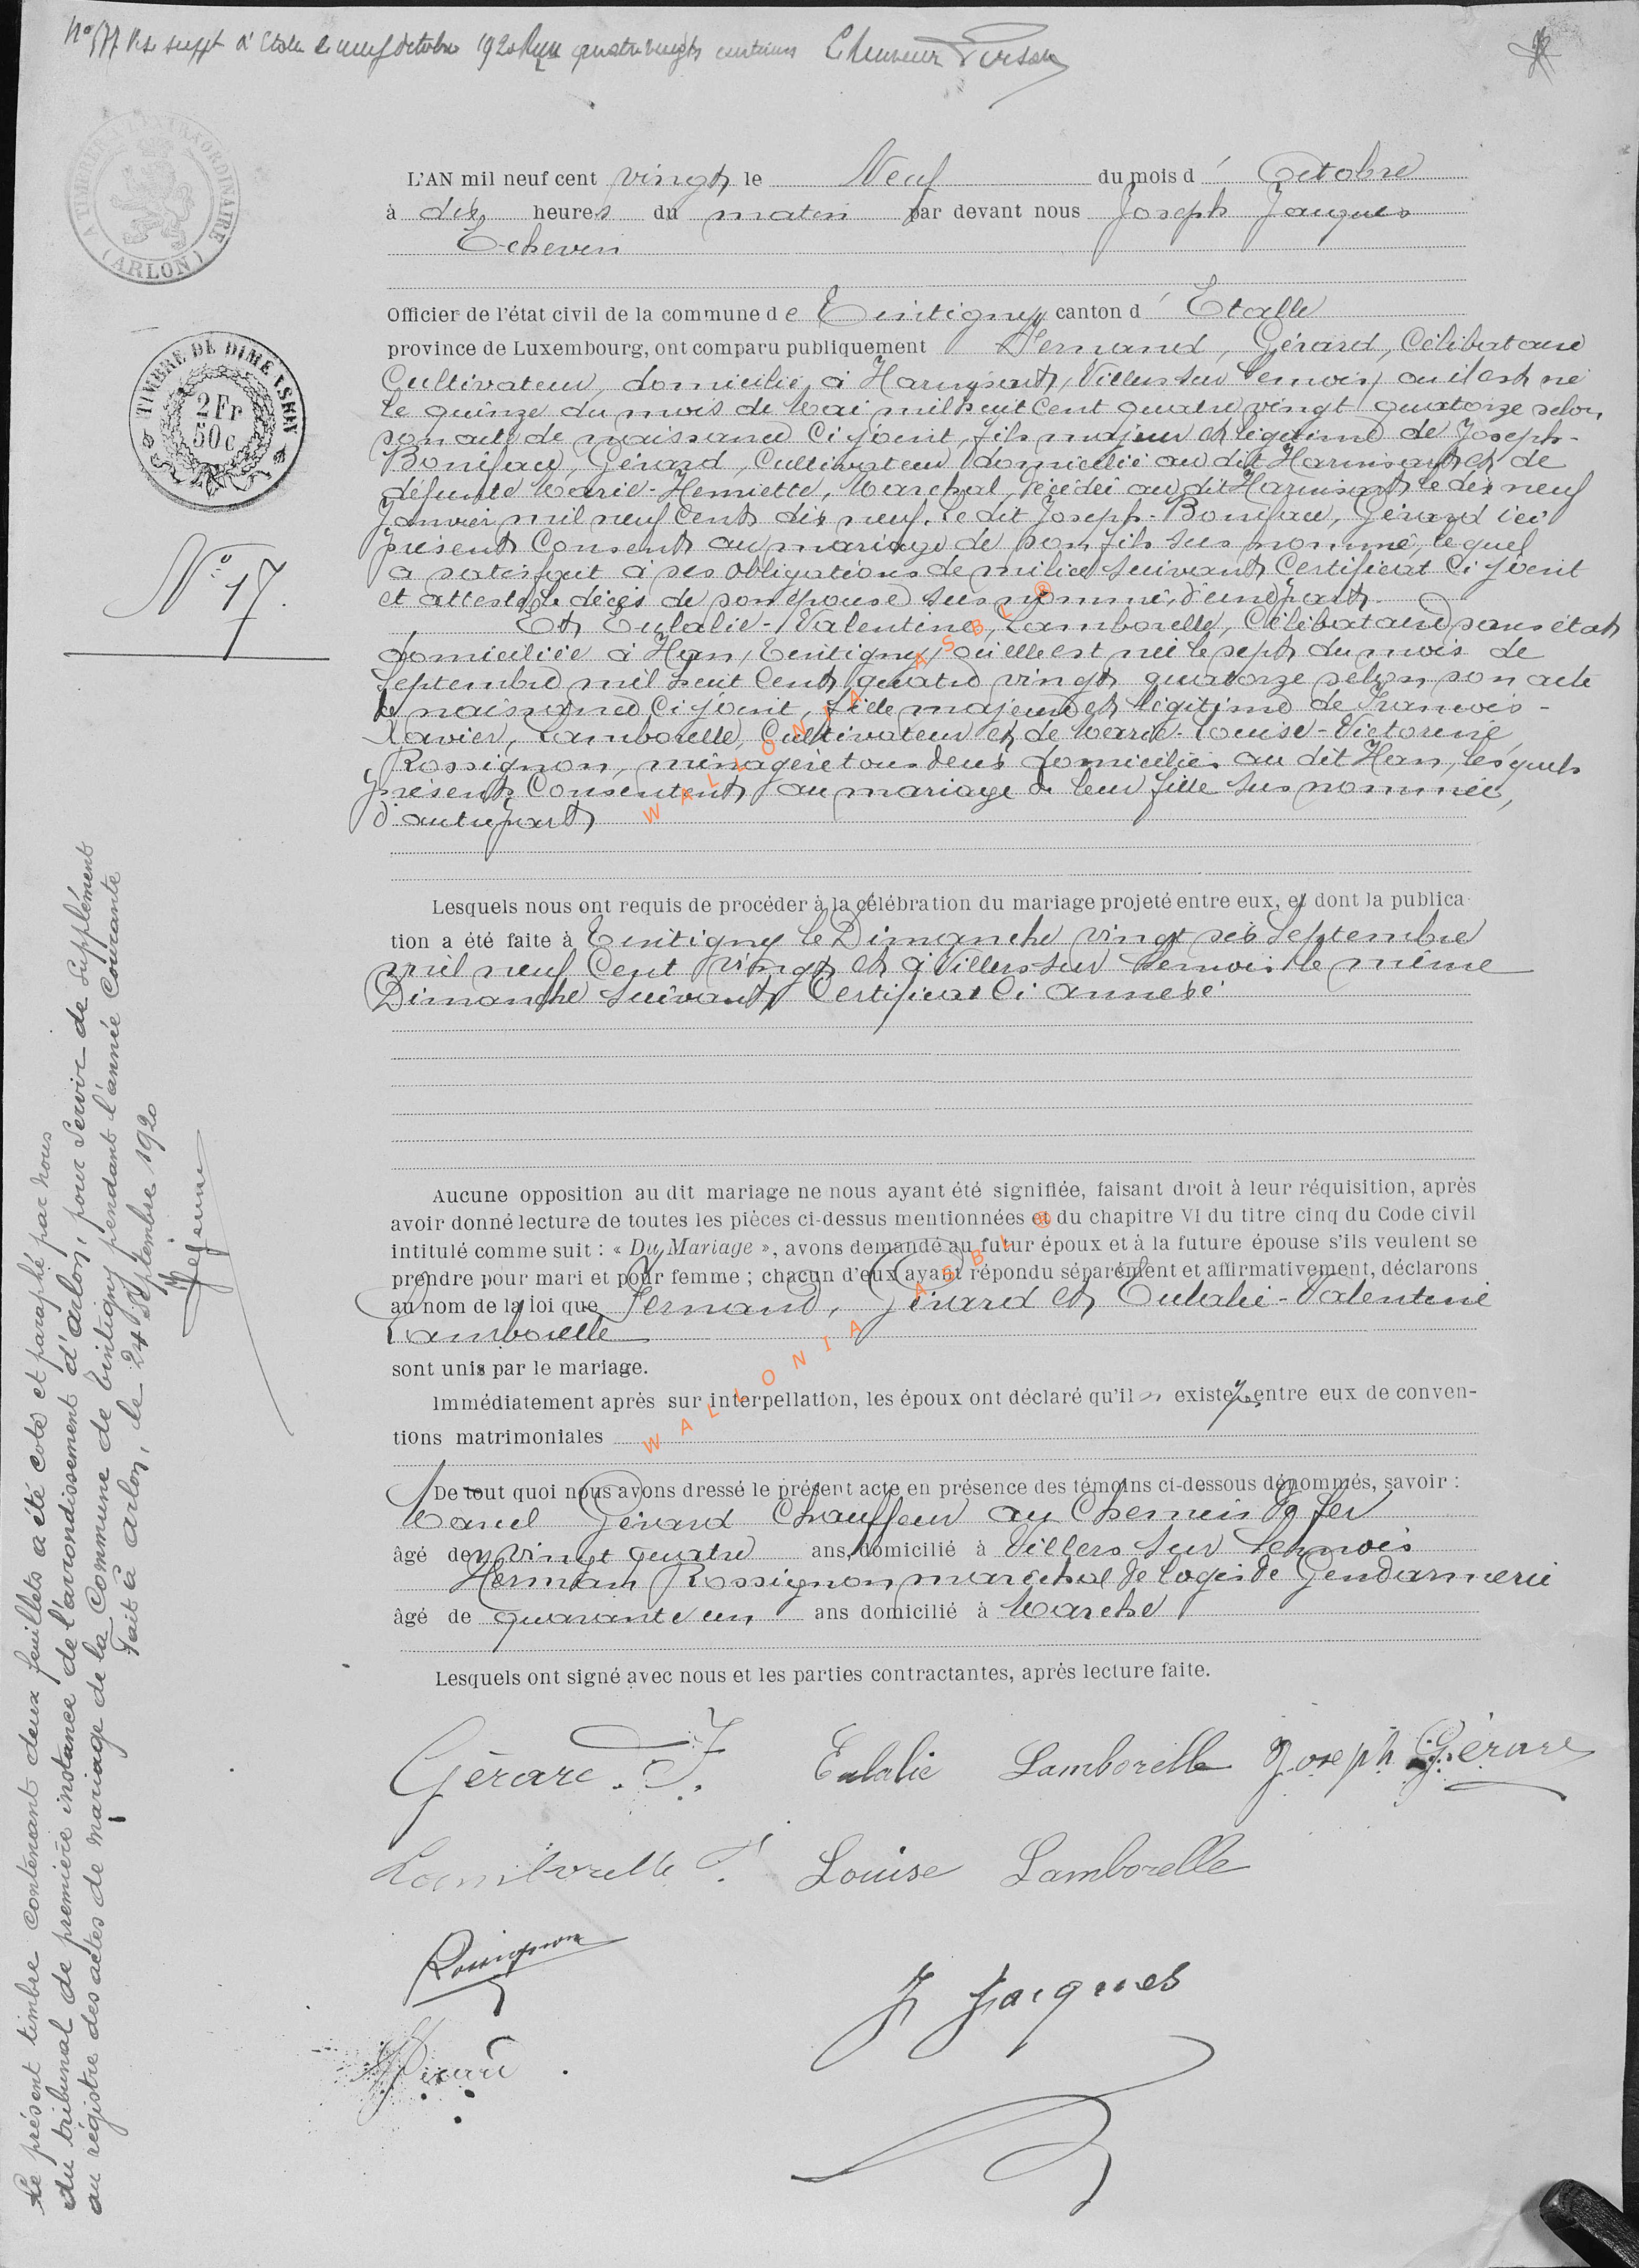 suppt à Etalle le neuf octobre 1920 Reçu quatre vingts centimes
A TIMBRER A L'EXTRAORDINAIRE
(ARLON)
L'AN mil neuf cent vingt le Neuf du mois d' Octobre
à dix heures du matin par devant nous Joseph Jacques
Echevin
Officier de l'état civil de la commune de Tintigny canton d' Etalle
province de Luxembourg, ont comparu publiquement Fernand, Gérard, Célibataire
TIMBRE DE DIMENSION
2Fr
50c
Cultivateur, domicilié à Harinsart, Villers sur Semois, où il est né
le quinze du mois de Mai mil huit Cent quatre vingt quatorze selon
son acte de naissance Ci joint, fils majeur et légitime de Joseph-
Boniface, Gérard, Cultivateur domicilié au dit Harinsart et de
défunte Marie-Henriette, Marchal, décédée au dit Harinsart le dix neuf
Janvier mil neuf Cent dix neuf. Le dit Joseph-Boniface, Gérard ici
présent Consent au mariage de son fils sus nommé, lequel
a satisfait à ses obligations de milice suivant Certificat Ci joint
et atteste le décès de son épouse sus nommée, d'une part.
N° 17.
Et Eulalie-Valentine, Lamborelle, Célibataire sans état
domiciliée à Han, Tintigny, où elle est née le sept du mois de
Septembre mil huit Cent quatre vingt quatorze selon son acte
de naissance Ci joint, fille majeure et légitime de François-
Xavier, Lamborelle, Cultivateur et de Marie-Louise-Victorine,
Rossignon, ménagère tous deux domiciliés au dit Han, lesquels
présents Consentent au mariage de leur fille sus nommée,
d'autre part
WALLONIA ASBL ®
Lesquels nous ont requis de procéder à la célébration du mariage projeté entre eux, et dont la publica-
tion a été faite à Tintigny le Dimanche vingt six Septembre
mil neuf Cent vingt et à Villers sur Semois le même
Dimanche suivant Certificat Ci annexé
Aucune opposition au dit mariage ne nous ayant été signifiée, faisant droit à leur réquisition, après
avoir donné lecture de toutes les pièces ci-dessus mentionnées et du chapitre VI du titre cinq du Code civil
intitulé comme suit : « Du Mariage », avons demandé au futur époux et à la future épouse s'ils veulent se
prendre pour mari et pour femme ; chacun d'eux ayant répondu séparément et affirmativement, déclarons
au nom de la loi que Fernand, Gérard et Eulalie-Valentine
Lamborelle
sont unis par le mariage.
Immédiatement après sur interpellation, les époux ont déclaré qu'il n' existe pas entre eux de conven-
tions matrimoniales
WALLONIA ASBL ®
De tout quoi nous avons dressé le présent acte en présence des témoins ci-dessous dénommés, savoir :
Marcel Gérard Chauffeur au Chemin de fer
âgé de vingt quatre ans, domicilié à Villers sur Semois
Hermann Rossignon maréchal de logis de Gendarmerie
âgé de quarante un ans domicilié à Marche
Lesquels ont signé avec nous et les parties contractantes, après lecture faite.
Gérard. F. Eulalie Lamborelle Joseph Gérard
Lamborelle Louise Lamborelle
Rossignon
J Jacques
Gérard
Le présent timbre contenant deux feuillets a été coté et paraphé par Nous
du tribunal de première instance de l'arrondissement d'Arlon, pour Servir de Supplément
au régistre des actes de mariage de la Commune de Tintigny pendant l'année Courante
Fait à Arlon, le 24 Septembre 1920